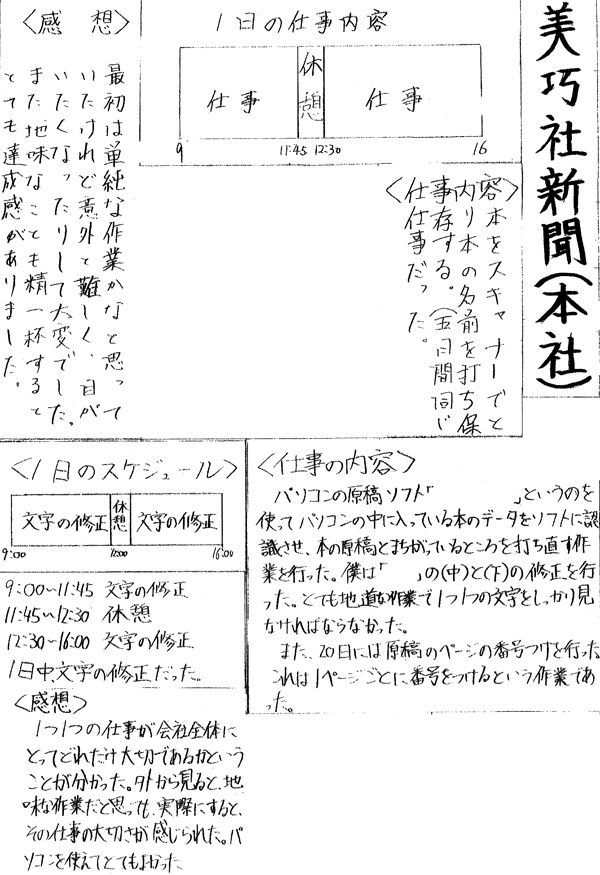 美巧社新聞(本社)
1日の仕事内容
仕事
休憩
仕事
9
11:45
12:30
16
〈仕事内容〉
本をスキャナーでと
り本の名前を打ち保
存する。(五日間同じ
仕事だった。
〈感想〉
最初は単純な作業かなと思って
いたけれど意外と難しく、目が
いたくなったりして大変でした。
また地味なことも精一杯すると
とても達成感がありました。
〈1日のスケジュール〉
文字の修正
休憩
文字の修正
9:00
16:00
9:00~11:45 文字の修正
11:45~12:30 休憩
12:30~16:00 文字の修正
1日中文字の修正だった。
〈仕事の内容〉
パソコンの原稿ソフト「 」というのを
使ってパソコンの中に入っている本のデータをソフトに認
識させ、本の原稿とまちがっているところを打ち直す作
業を行った。僕は「 」の(中)と(下)の修正を行
った。とても地道な作業で1つ1つの文字をしっかり見
なければならなかった。
また、20日には原稿のページの番号つけを行った
これは1ページごとに番号をつけるという作業であ
った。
〈感想〉
1つ1つの仕事が会社全体に
とってどれだけ大切であるかという
ことが分かった。外から見ると、地
味な作業だと思っても、実際にすると、
その仕事の大切さが感じられた。パ
ソコンを使えてとてもよかった